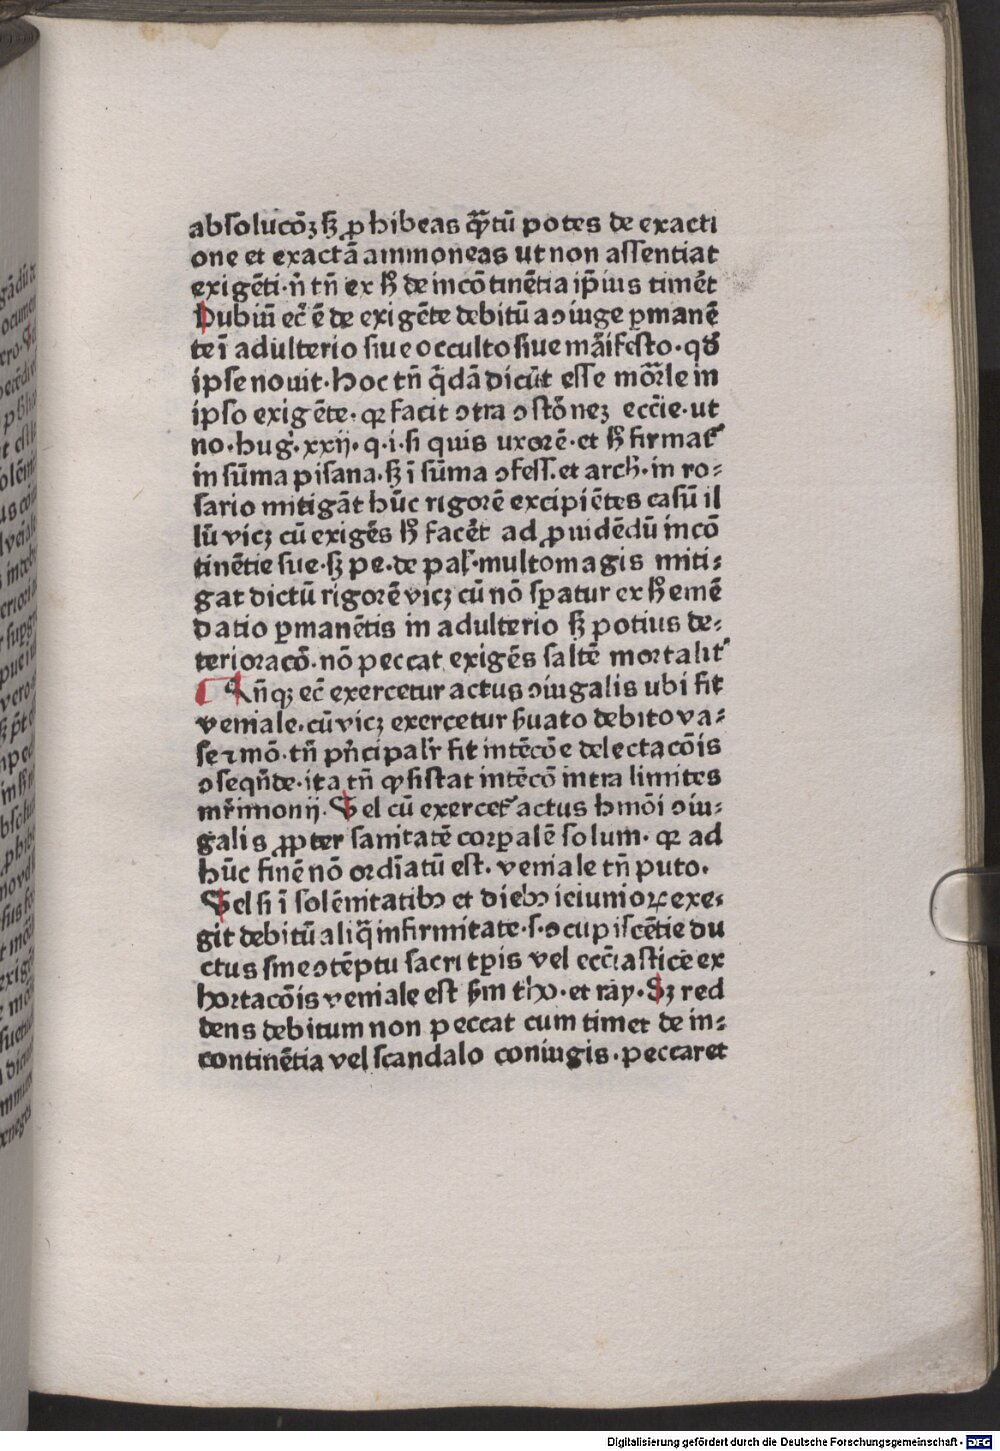 absolucōꝫ sꝫ ꝓhibeas qᷓtū potes de exacti
one et exactā ammoneas ut non assentiat
exigēti· n̄ tn̄ ex hͦ de incōtinētia ip̄ius timēt
Dubiū ec̄ ē de exigēte debitū a ↄiuge ꝑmanē
te ī adulterio siue occulto siue māifesto· qđ
ipse nouit· hoc tn̄ q̄dā dicūt esse mōrle in
ipso exigēte· qꝛ facit ↄtra ↄstōneꝫ ecc̄ie· ut
no· hug̛· xxij· q· i· si quis uxorē· et hͦ firmat᷑
in sūma pisana· sꝫ ī sūma ↄfess̄· et arch̄· in ro⸗
sario mitigāt hūc rigorē excipiētes casū il
lū vicꝫ cū exigēs hͦ facēt ad ꝓuidēdū incō
tinētie sue· sꝫ pe· de pal̄· multomagis miti⸗
gat dictū rigorē vicꝫ cū nō sꝑatur ex hͦ emē
datio ꝑmanētis in adulterio sꝫ potius de⸗
terioracō· nō peccat exigēs saltē mortalit᷑
Qn̄qꝫ ec̄ exercetur actus ↄiugalis ubi fit
veniale· cū vicꝫ exercetur s̄uato debito va⸗
se ⁊ mō· tn̄ pn̄cipalr̄ fit intēcōe delectacōis
ↄseqn̄de· ita tn̄ ꝙ sistat intēcō intra limites
mr̄imonij· Uel cū exercet᷑ actus hmōi ↄiu⸗
galis ꝓpter sanitatē corꝑalē solum· qꝛ ad
hūc finē nō ordīatū est· veniale tn̄ puto·
Uel si ī solēnitatibꝰ et diebꝰ ieiunioꝝ exe⸗
git debitū aliq̄ infirmitate· s· ↄcupiscētie du
ctus sine ↄtēptu sacri tꝑis vel ecc̄iastice ex
hortacōis veniale est s̄m tho· et ray· Sꝫ red
dens debitum non peccat cum timet de in⸗
continētia vel scandalo coniugis· peccaret
Digitalisierung gefördert durch die Deutsche Forschungsgemeinschaft - DFG